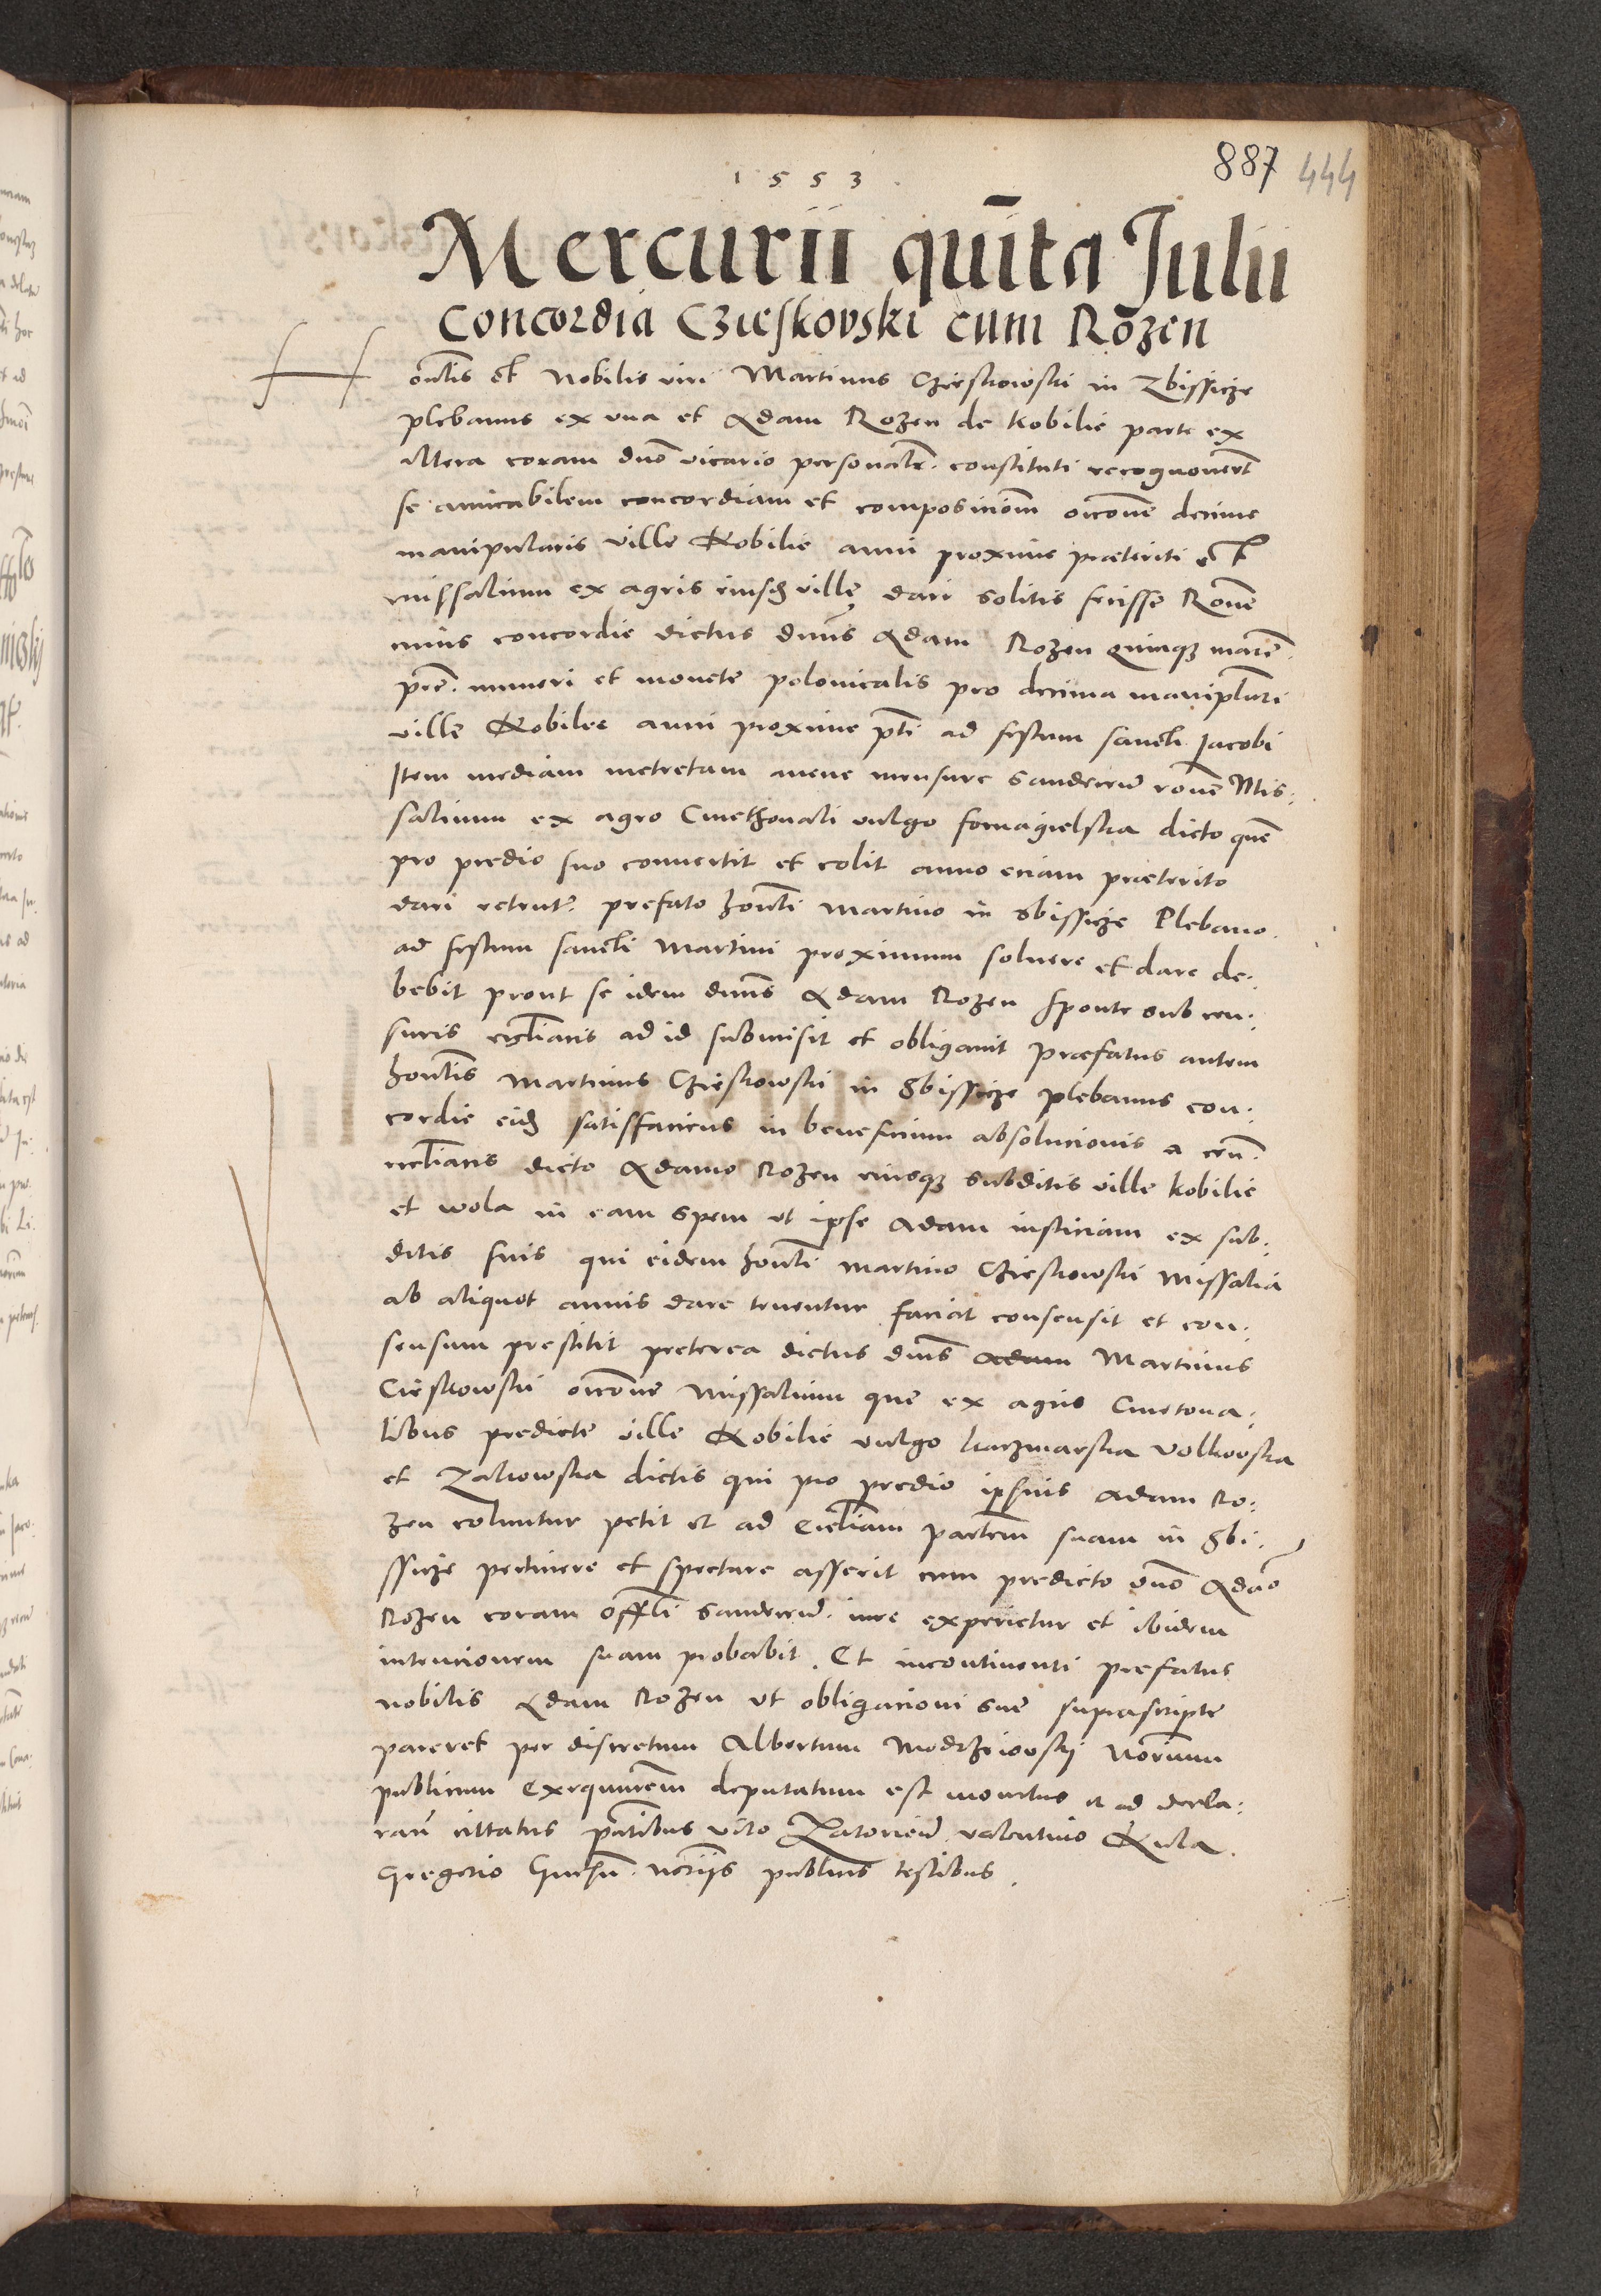 1553
887 444
Mercurii quīta Julii
Concordia Czieskovski cum Rozen
Honlis et Nobilis viri Martinus Czieskowski in Zbissicze
plebanus ex una et Adam Rozen de Kobilie parte ex
altera coram dno vicario personalr. constituti recognovert
se amicabilem concordiam et composiciom occone decime
manipularis ville Kobilie anni proxime præteriti et
missalium ex agris eiusd ville dari solitis fecisse Rone
cuius concordie dictus dnus Adam Rozen quinqz marc.
pec. numeri et monete polonicalis pro decima manipulari
ville Kobilee anni proxime pti ad festum sancti Jacobi
Item mediam metretam avene mensure Sandecien rone Mis:
salium ex agro Cmethonali vulgo fornagielska dicto quem
pro predio suo convertit et colit anno eciam præterito
dari retent. prefato honli Martino in Sbissicze Plebano.
ad festum sancti Martini proximum solvere et dare de:
bebit prout se idem dnus Adam Rozen sponte sub cen:
suris ecclianis ad id submisit et obligavit Præfatus autem
honlis Martinus Czieskowski in Sbissicze plebanus con:
cordie eid satisfaciens in beneficium absolucionis a cen.
ecclianis dicto Adamo Rozen eiusqz subditis ville Kobilie
et wola in eam spem ut ipse Adam iusticiam ex sub:
ditis suis qui eidem honli Martino Czieskowski Missalia
ab aliquot annis dare tenentur faciat consensit et con:
sensum prestitit preterea dictus dnus Adam Martinus
Cieskowski occone Missalium que ex agris Cmetona:
libus predicte ville Kobilie vulgo karzmarska Volkovska
et Zakowska dictis qui pro predio ipsius Adam Ro:
zen coluntur petit et ad Eccliam partem suam in Sbi:
ssicze pertinere et spectare asserit cum predicto dno Adamo
Rozen coram offli Sandecien. iure experietur et ibidem
intencionem suam probabit. Et incontinenti prefatus
nobilis Adam Rozen ut obligacioni sue suprascripte
pareret per discretum Albertum Modrzeiowskij Norium
publicum Exequutorem deputatum est monitus et ad decla:
ran cittatus pntibus vito Zatorien valentino Kula
Gregorio noriis publicis testibus.